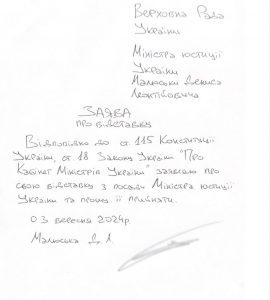 Верховна Рада
України
Міністра юстиції
України
Малюськи Дениса
Леонтійовича
ЗАЯВА
про відставку
Відповідно до ст. 115 Конституції
України, ст. 18 Закону України "Про
Кабінет Міністрів України" заявляю про
свою відставку з посади Міністра юстиції
України та прошу її прийняти.
03 вересня 2024р.
Малюська Д. Л.